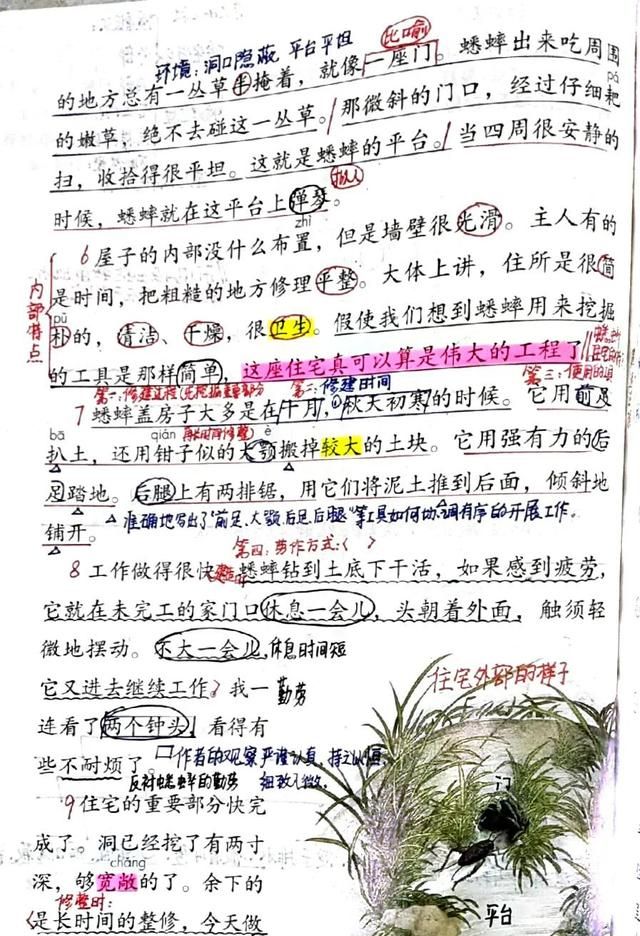 比喻
环境：洞口隐蔽 平台平坦
的地方总有一丛草半掩着，就像一座门。蟋蟀出来吃周围
的嫩草，绝不去碰这一丛草。那微斜的门口，经过仔细耙
pá
扫，收拾得很平坦。这就是蟋蟀的平台。当四周很安静的
拟人
时候，蟋蟀就在这平台上弹琴。
zhì
6屋子的内部没什么布置，但是墙壁很光滑。主人有的
是时间，把粗糙的地方修理平整。大体上讲，住所是很简
内部特点
pǔ
朴的，清洁、干燥，很卫生。假使我们想到蟋蟀用来挖掘
的工具是那样简单，这座住宅真可以算是伟大的工程了。
第一：修建过程(先挖掘重要部分
再长时间修整)
第二：修建时间
第三：使用的工具
7蟋蟀盖房子大多是在十月，秋天初寒的时候。它用前足
bā
qián
è
扒土，还用钳子似的大颚搬掉较大的土块。它用强有力的后
足踏地。后腿上有两排锯，用它们将泥土推到后面，倾斜地
铺开。
准确地写出了"前足、大颚、后足、后腿"等工具如何协调有序的开展工作。
第四：劳作方式：( )
8工作做得很快。蟋蟀钻到土底下干活，如果感到疲劳，
它就在未完工的家门口休息一会儿，头朝着外面，触须轻
微地摆动。不大一会儿，
休息时间短
它又进去继续工作。我一
勤劳
连看了两个钟头，看得有
些不耐烦了。
作者的观察严谨认真，持之以恒，
细致入微。
反衬蟋蟀的勤劳
9住宅的重要部分快完
成了。洞已经挖了有两寸
chǎng
深，够宽敞的了。余下的
修整时：
是长时间的整修，今天做
住宅外部的样子
门
平台